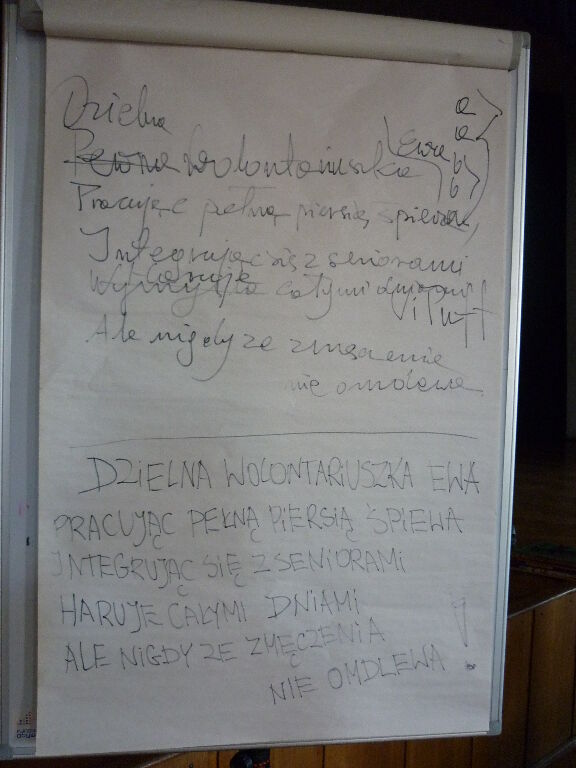 Dzielna
Pewna Wolontariuszka Ewa
a
a
b
b
Pracując pełną piersią śpiewa,
Integrując się z seniorami
haruje całymi dniami
Ale nigdy ze zmęczenia
nie omdlewa
DZIELNA WOLONTARIUSZKA EWA
PRACUJĄC PEŁNĄ PIERSIĄ ŚPIEWA
INTEGRUJĄC SIĘ Z SENIORAMI
HARUJE CAŁYMI DNIAMI
ALE NIGDY ZE ZMĘCZENIA
NIE OMDLEWA !